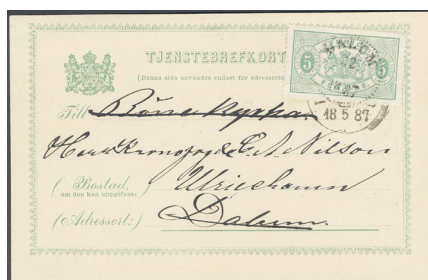 TJENSTEBREFKORT
(Denna sida användes endast för adressering
5 5
18 5 87
Till
Herr Kronofogd C. A. Nilson
(Bostad,
om den kan uppgifvas:)
Ulricehamn
(Adressort:)
Dalum.